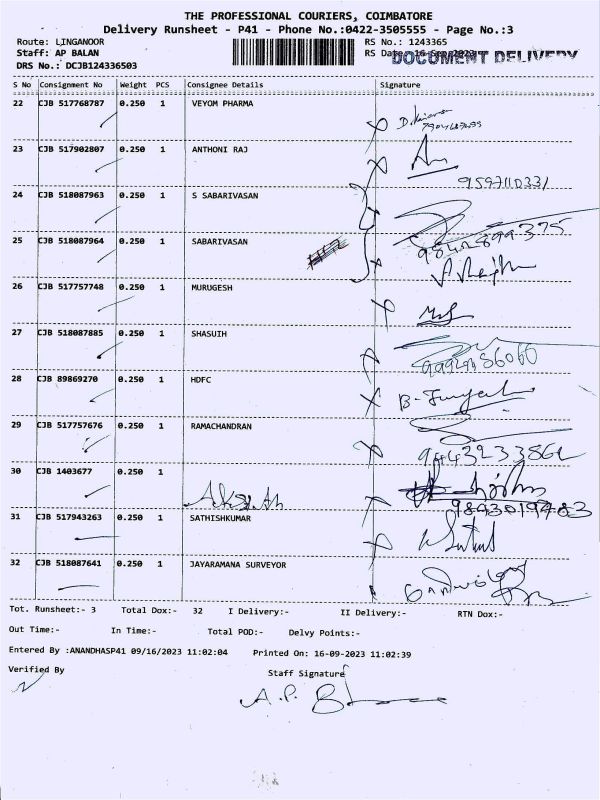 THE PROFESSIONAL COURIERS, COIMBATORE
Delivery Runsheet - P41 - Phone No.:0422-3505555 - Page No.:3
Route: LINGANOOR RS No.: 1243365
Staff: AP BALAN RS Date: 16-Sep-2023 DOCUMENT DELIVERY
DRS No.: DCJB124336503
S No Consignment No Weight PCS Consignee Details Signature
22 CJB 517768787 0.250 1 VEYOM PHARMA
23 CJB 517902807 0.250 1 ANTHONI RAJ
9597110331
24 CJB 518087963 0.250 1 S SABARIVASAN
9842899375
25 CJB 518087964 0.250 1 SABARIVASAN
26 CJB 517757748 0.250 1 MURUGESH
27 CJB 518087885 0.250 1 SHASUIH
28 CJB 89869270 0.250 1 HDFC
29 CJB 517757676 0.250 1 RAMACHANDRAN
30 CJB 1403677 0.250 1
31 CJB 517943263 0.250 1 SATHISHKUMAR
32 CJB 518087641 0.250 1 JAYARAMANA SURVEYOR
Tot. Runsheet:- 3 Total Dox:- 32 I Delivery:- II Delivery:- RTN Dox:-
Out Time:- In Time:- Total POD:- Delvy Points:-
Entered By :ANANDHASP41 09/16/2023 11:02:04 Printed On: 16-09-2023 11:02:39
Verified By Staff Signature